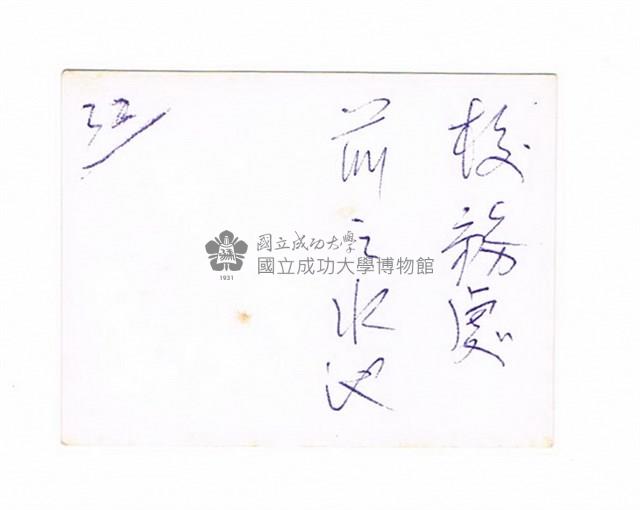 校務處
前之水池
32
國立成功大學
國立成功大學博物館
1931